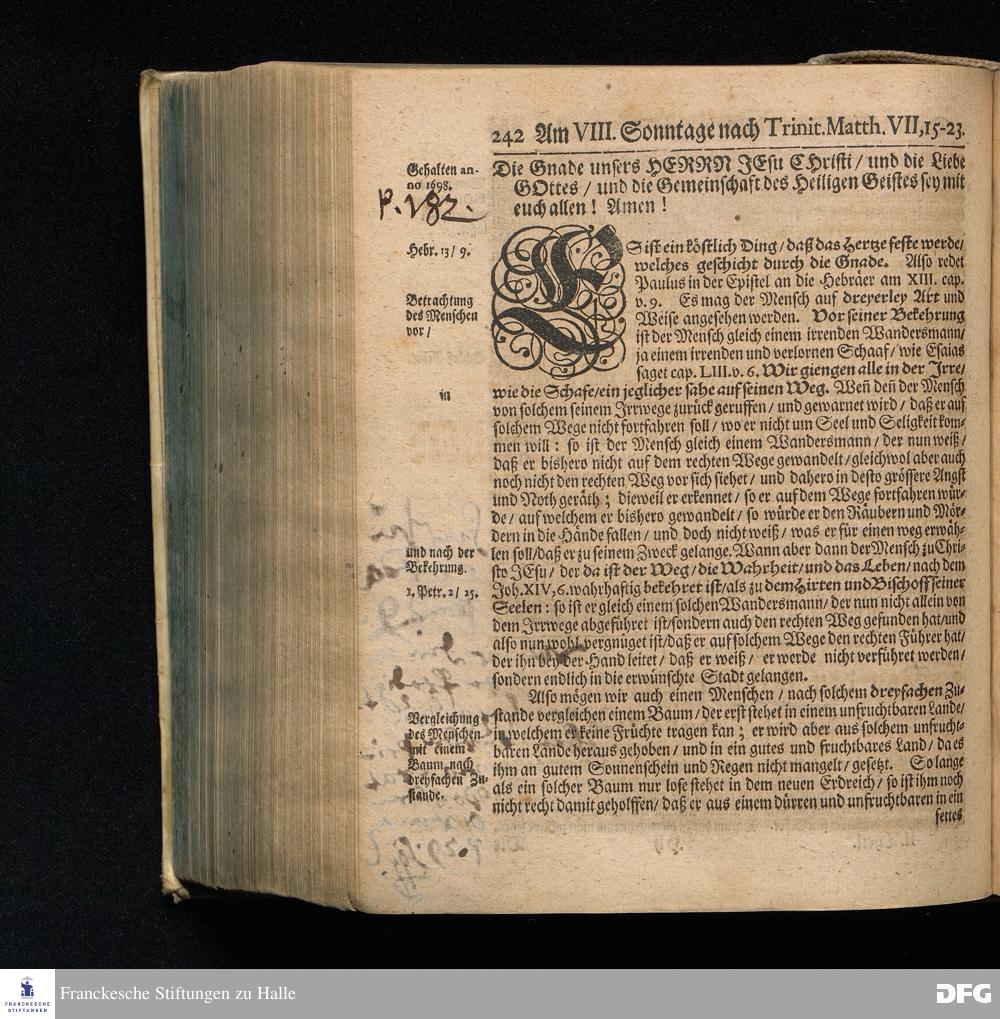 242 Am VIII. Sonntage nach Trinit. Matth. VII, 15-23.
Gehalten an-
no 1698.
p. 182.
Die Gnade unsers HERRN JEsu CHristi / und die Liebe
GOttes / und die Gemeinschaft des Heiligen Geistes sey mit
euch allen! Amen!
Hebr. 13 / 9.
ES ist ein köstlich Ding / daß das Hertze feste werde /
welches geschicht durch die Gnade. Also redet
Paulus in der Epistel an die Hebräer am XIII. cap.
v. 9. Es mag der Mensch auf dreyerley Art und
Weise angesehen werden. Vor seiner Bekehrung
ist der Mensch gleich einem irrenden Wandersmann /
ja einem irrenden und verlornen Schaaf / wie Esaias
saget cap. LIII. v. 6. Wir giengen alle in der Irre /
Betrachtung
des Menschen
vor /
wie die Schafe / ein jeglicher sahe auf seinen Weg. Wen̄ den̄ der Mensch
in
von solchem seinem Irrwege zurück geruffen / und gewarnet wird / daß er auf
solchem Wege nicht fortfahren soll / wo er nicht um Seel und Seligkeit kom-
men will: so ist der Mensch gleich einem Wandersmann / der nun weiß /
daß er bishero nicht auf dem rechten Wege gewandelt / gleichwol aber auch
noch nicht den rechten Weg vor sich siehet / und dahero in desto grössere Angst
und Noth geräth; dieweil er erkennet / so er auf dem Wege fortfahren wür-
de / auf welchem er bishero gewandelt / so würde er den Räubern und Mör-
dern in die Hände fallen / und doch nicht weiß / was er für einen weg erwäh-
len soll / daß er zu seinem Zweck gelange. Wann aber dann der Mensch zu Chri-
sto JEsu / der da ist der Weg / die Wahrheit / und das Leben / nach dem
Joh. XIV, 6. wahrhaftig bekehret ist / als zu dem Hirten und Bischoff seiner
Seelen: so ist er gleich einem solchen Wandersmann / der nun nicht allein von
dem Irrwege abgeführet ist / sondern auch den rechten Weg gefunden hat / und
also nun wohl vergnüget ist / daß er auf solchem Wege den rechten Führer hat /
der ihn bey der Hand leitet / daß er weiß / er werde nicht verführet werden /
sondern endlich in die erwünschte Stadt gelangen.
und nach der
Bekehrung.
1. Petr. 2 / 25.
Also mögen wir auch einen Menschen / nach solchem dreyfachen Zu-
stande vergleichen einem Baum / der erst stehet in einem unfruchtbaren Lande /
in welchem er keine Früchte tragen kan; er wird aber aus solchem unfrucht-
baren Lande heraus gehoben / und in ein gutes und fruchtbares Land / da es
ihm an gutem Sonnenschein und Regen nicht mangelt / gesetzt. So lange
als ein solcher Baum nur lose stehet in dem neuen Erdreich / so ist ihm noch
nicht recht damit geholffen / daß er aus einem dürren und unfruchtbaren in ein
fettes
Vergleichung
des Menschen
mit einem
Baum nach
dreyfachen Zu-
stande.
FRANCKESCHE
STIFTUNGEN
Franckesche Stiftungen zu Halle
DFG